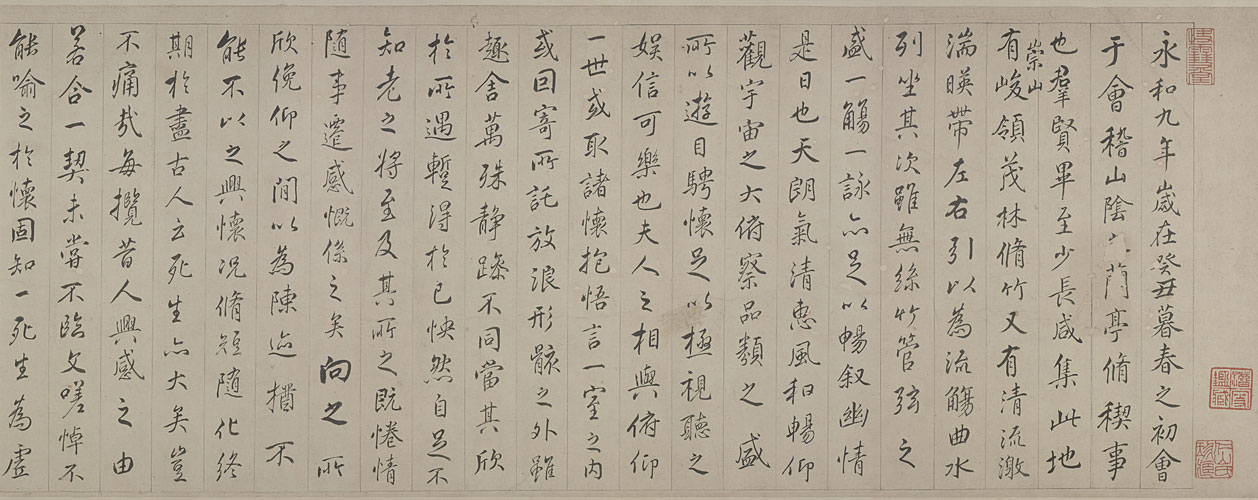 永和九年歲在癸丑暮春之初會
于會稽山陰蘭亭脩稧事
也羣賢畢至少長咸集此地
有崇山峻領茂林脩竹又有清流激
湍暎帶左右引以為流觴曲水
列坐其次雖無絲竹管弦之
盛一觴一詠亦足以暢叙幽情
是日也天朗氣清惠風和暢仰
觀宇宙之大俯察品類之盛
所以遊目騁懷足以極視聽之
娱信可樂也夫人之相與俯仰
一世或取諸懷抱悟言一室之内
或因寄所託放浪形骸之外雖
趣舍萬殊静躁不同當其欣
於所遇蹔得於己怏然自足不
知老之將至及其所之既惓情
随事遷感慨係之矣向之所
欣俛仰之閒以為陳迹猶不
能不以之興懷况脩短随化終
期於盡古人云死生亦大矣豈
不痛哉每攬昔人興感之由
若合一契未甞不臨文嗟悼不
能喻之於懷固知一死生為虚